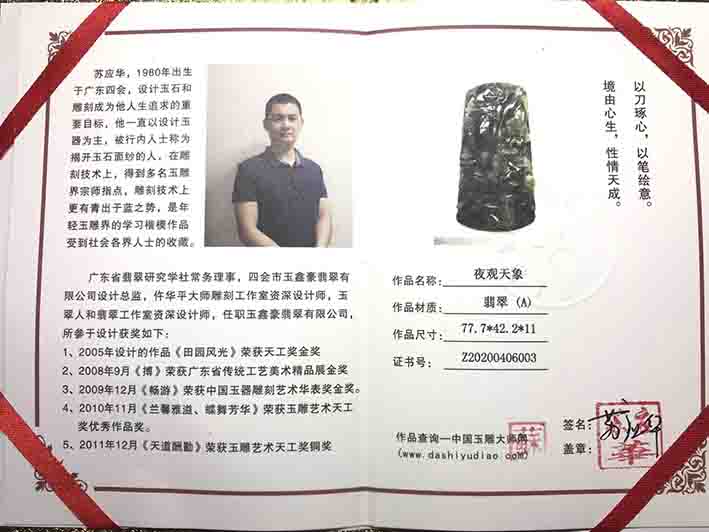 苏应华，1980年出生
于广东四会，设计玉石和
雕刻成为他人生追求的重
要目标，他一直以设计玉
器为主，被行内人士称为
揭开玉石面纱的人，在雕
刻技术上，得到多名玉雕
界宗师指点，雕刻技术上
更有青出于蓝之势，是年
轻玉雕界的学习楷模作品
受到社会各界人士的收藏。
广东省翡翠研究学社常务理事，四会市玉鑫豪翡翠有
限公司设计总监，仵华平大师雕刻工作室资深设计师，玉
翠人和翡翠工作室资深设计师，任职玉鑫豪翡翠有限公司，
所参于设计获奖如下：
1、2005年设计的作品《田园风光》荣获天工奖金奖
2、2008年9月《博》荣获广东省传统工艺美术精品展金奖
3、2009年12月《畅游》荣获中国玉器雕刻艺术华表奖金奖。
4、2010年11月《兰馨雅道、蝶舞芳华》荣获玉雕艺术天工
奖优秀作品奖。
5、2011年12月《天道酬勤》荣获玉雕艺术天工奖铜奖
以刀琢心，以笔绘意。
境由心生，性情天成。
作品名称：夜观天象
作品材质：翡翠（A）
作品尺寸：77.7*42.2*11
证书号：Z20200406003
作品查询—中国玉雕大师网
(www.dashiyudiao.com)
蘇
签名：苏应华
盖章：